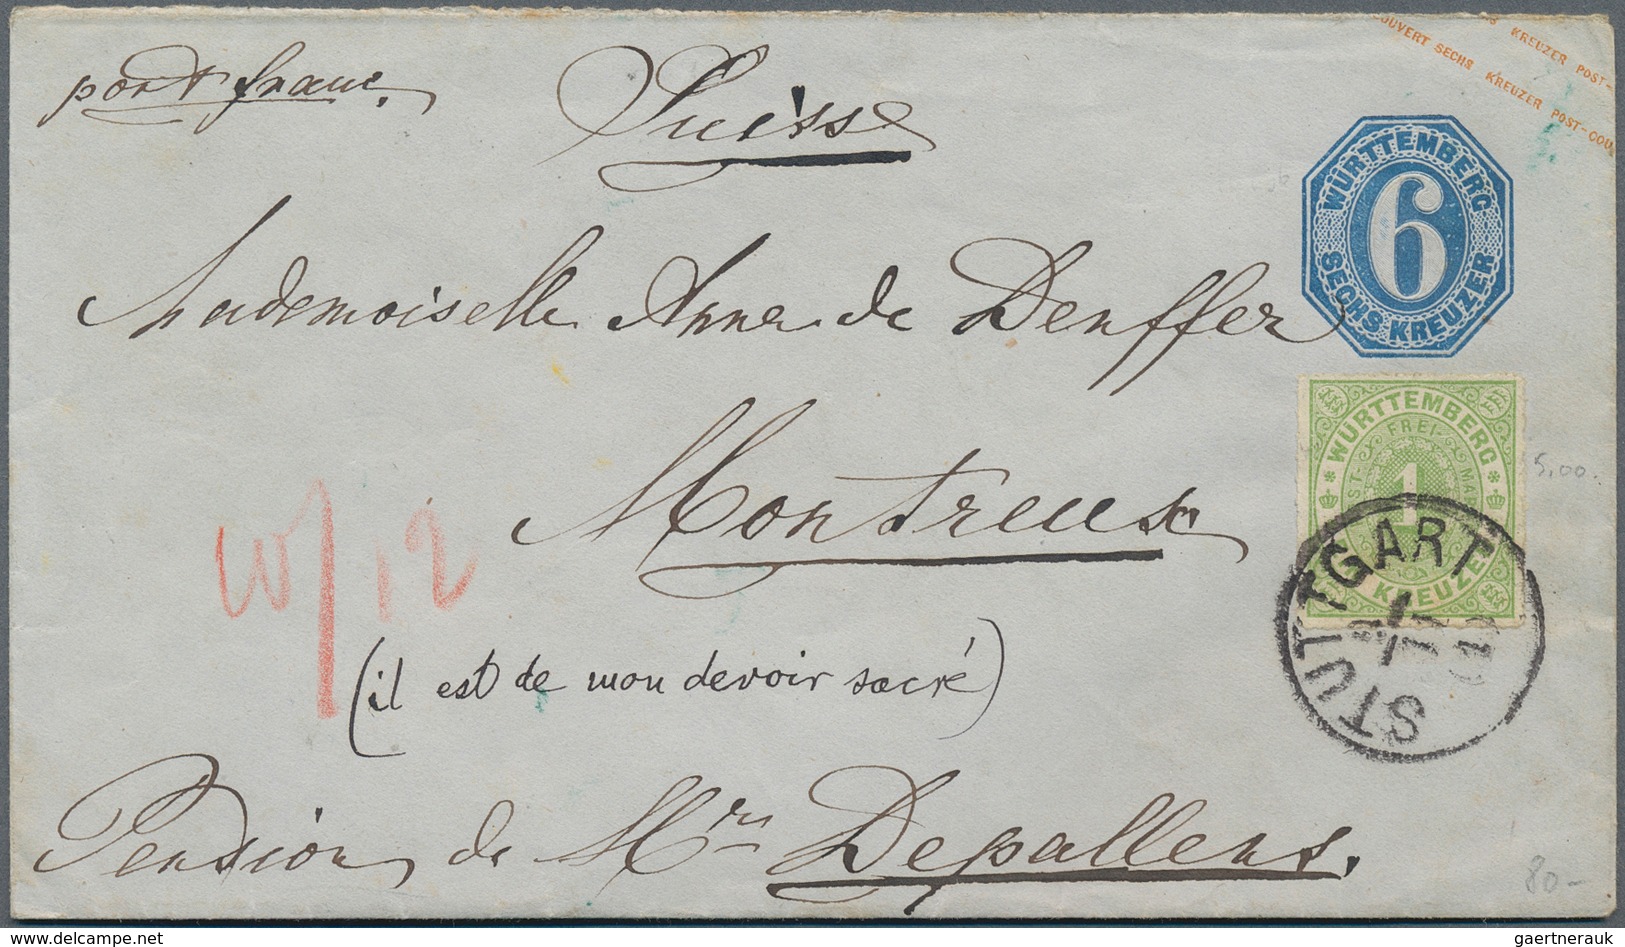 COUVERT SECHS KREUZER POST-COU
KREUZER POST-
port franc.
Suisse
WÜRTTEMBERG
6
SECHS KREUZER
Mademoiselle Anna de Denffer
WÜRTTEMBERG
FREI-
1
KREUZER
5,00.
Montreux
STUTTGART
W/12
(il est de mon devoir sacré)
Pension de Mrs Depallens.
80-
delcampe.net
gaertnerauk